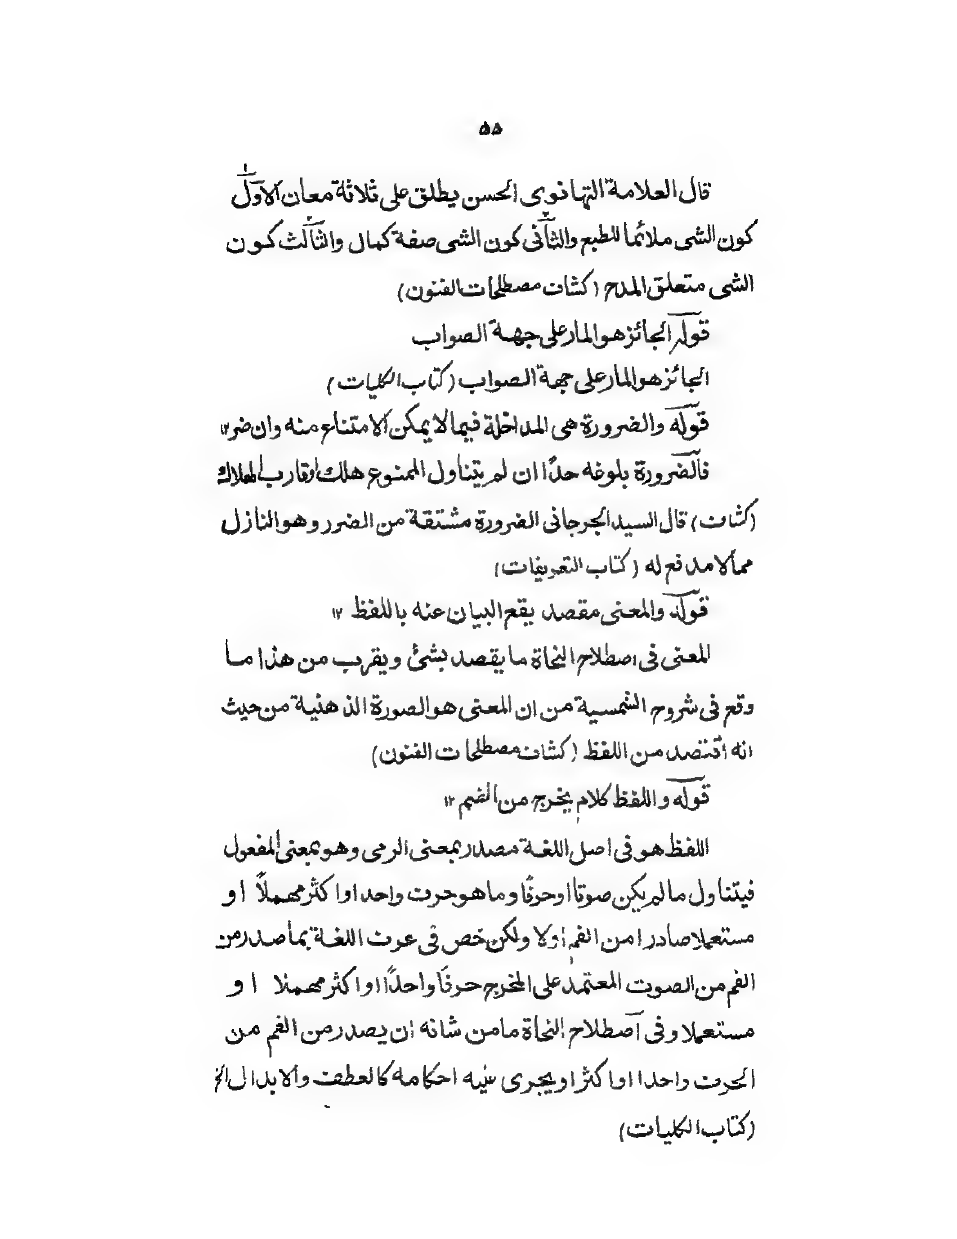 ۵۵
قال العلامة التهانوى الحسن يطلق على ثلاثة معان الاول ۱
كون الشى ملائما للطبع والثانى ۲ كون الشى صفة كمال والثالث ۳ كون
الشى متعلق المدح (كشاف مصطلحات الفنون)
قوله الجائز هو المار على جهة الصواب
الجائز هو المار على جهة الصواب (كتاب الكليات)
قوله والضرورة هى المداخلة فيما لا يمكن الامتناع منه وان ضر ۱۲
فالضرورة بلوغه حدًا ان لم يتناول الممنوع هلك او قارب الهلاك
(كشاف) قال السيد الجرجانى الضرورة مشتقة من الضرر وهو النازل
مما لا مدفع له (كتاب التعريفات)
قوله والمعنى مقصد يقع البيان عنه باللفظ ۱۲
المعنى فى اصطلاح النحاة ما يقصد بشئ ويقرب من هذا ما
وقع فى شروح الشمسية من ان المعنى هو الصورة الذهنية من حيث
انه اقتصد من اللفظ (كشاف مصطلحات الفنون)
قوله واللفظ كلام يخرج من الفم ۱۲
اللفظ هو فى اصل اللغة مصدر بمعنى الرمى وهو بمعنى المفعول
فيتناول ما لم يكن صوتا او حرفًا وما هو حرف واحد او اكثر مهملًا او
مستعملا صادرا من الفم اولا ولكن خص فى عرف اللغة بما صدر من
الفم من الصوت المعتمد على المخرج حرفًا واحدًا او اكثر مهملا او
مستعملا وفى اصطلاح النحاة ما من شانه ان يصدر من الفم من
الحرف واحدا او اكثر او يجرى عليه احكامه كالعطف والابدال الخ
(كتاب الكليات)